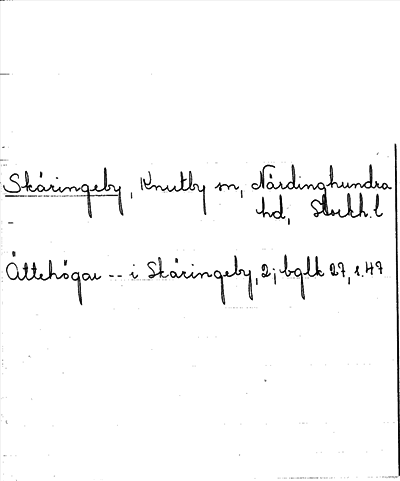 Skäringeby, Knutby sn, Närdinghundra
hd, Stockh. l
Ättehögar -- i Skäringeby, 2; bglk 27, s. 47